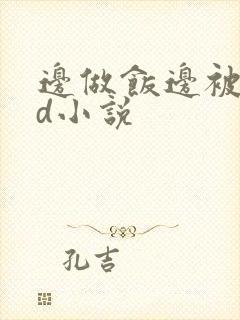 邊做飯邊被
d小説
孔吉